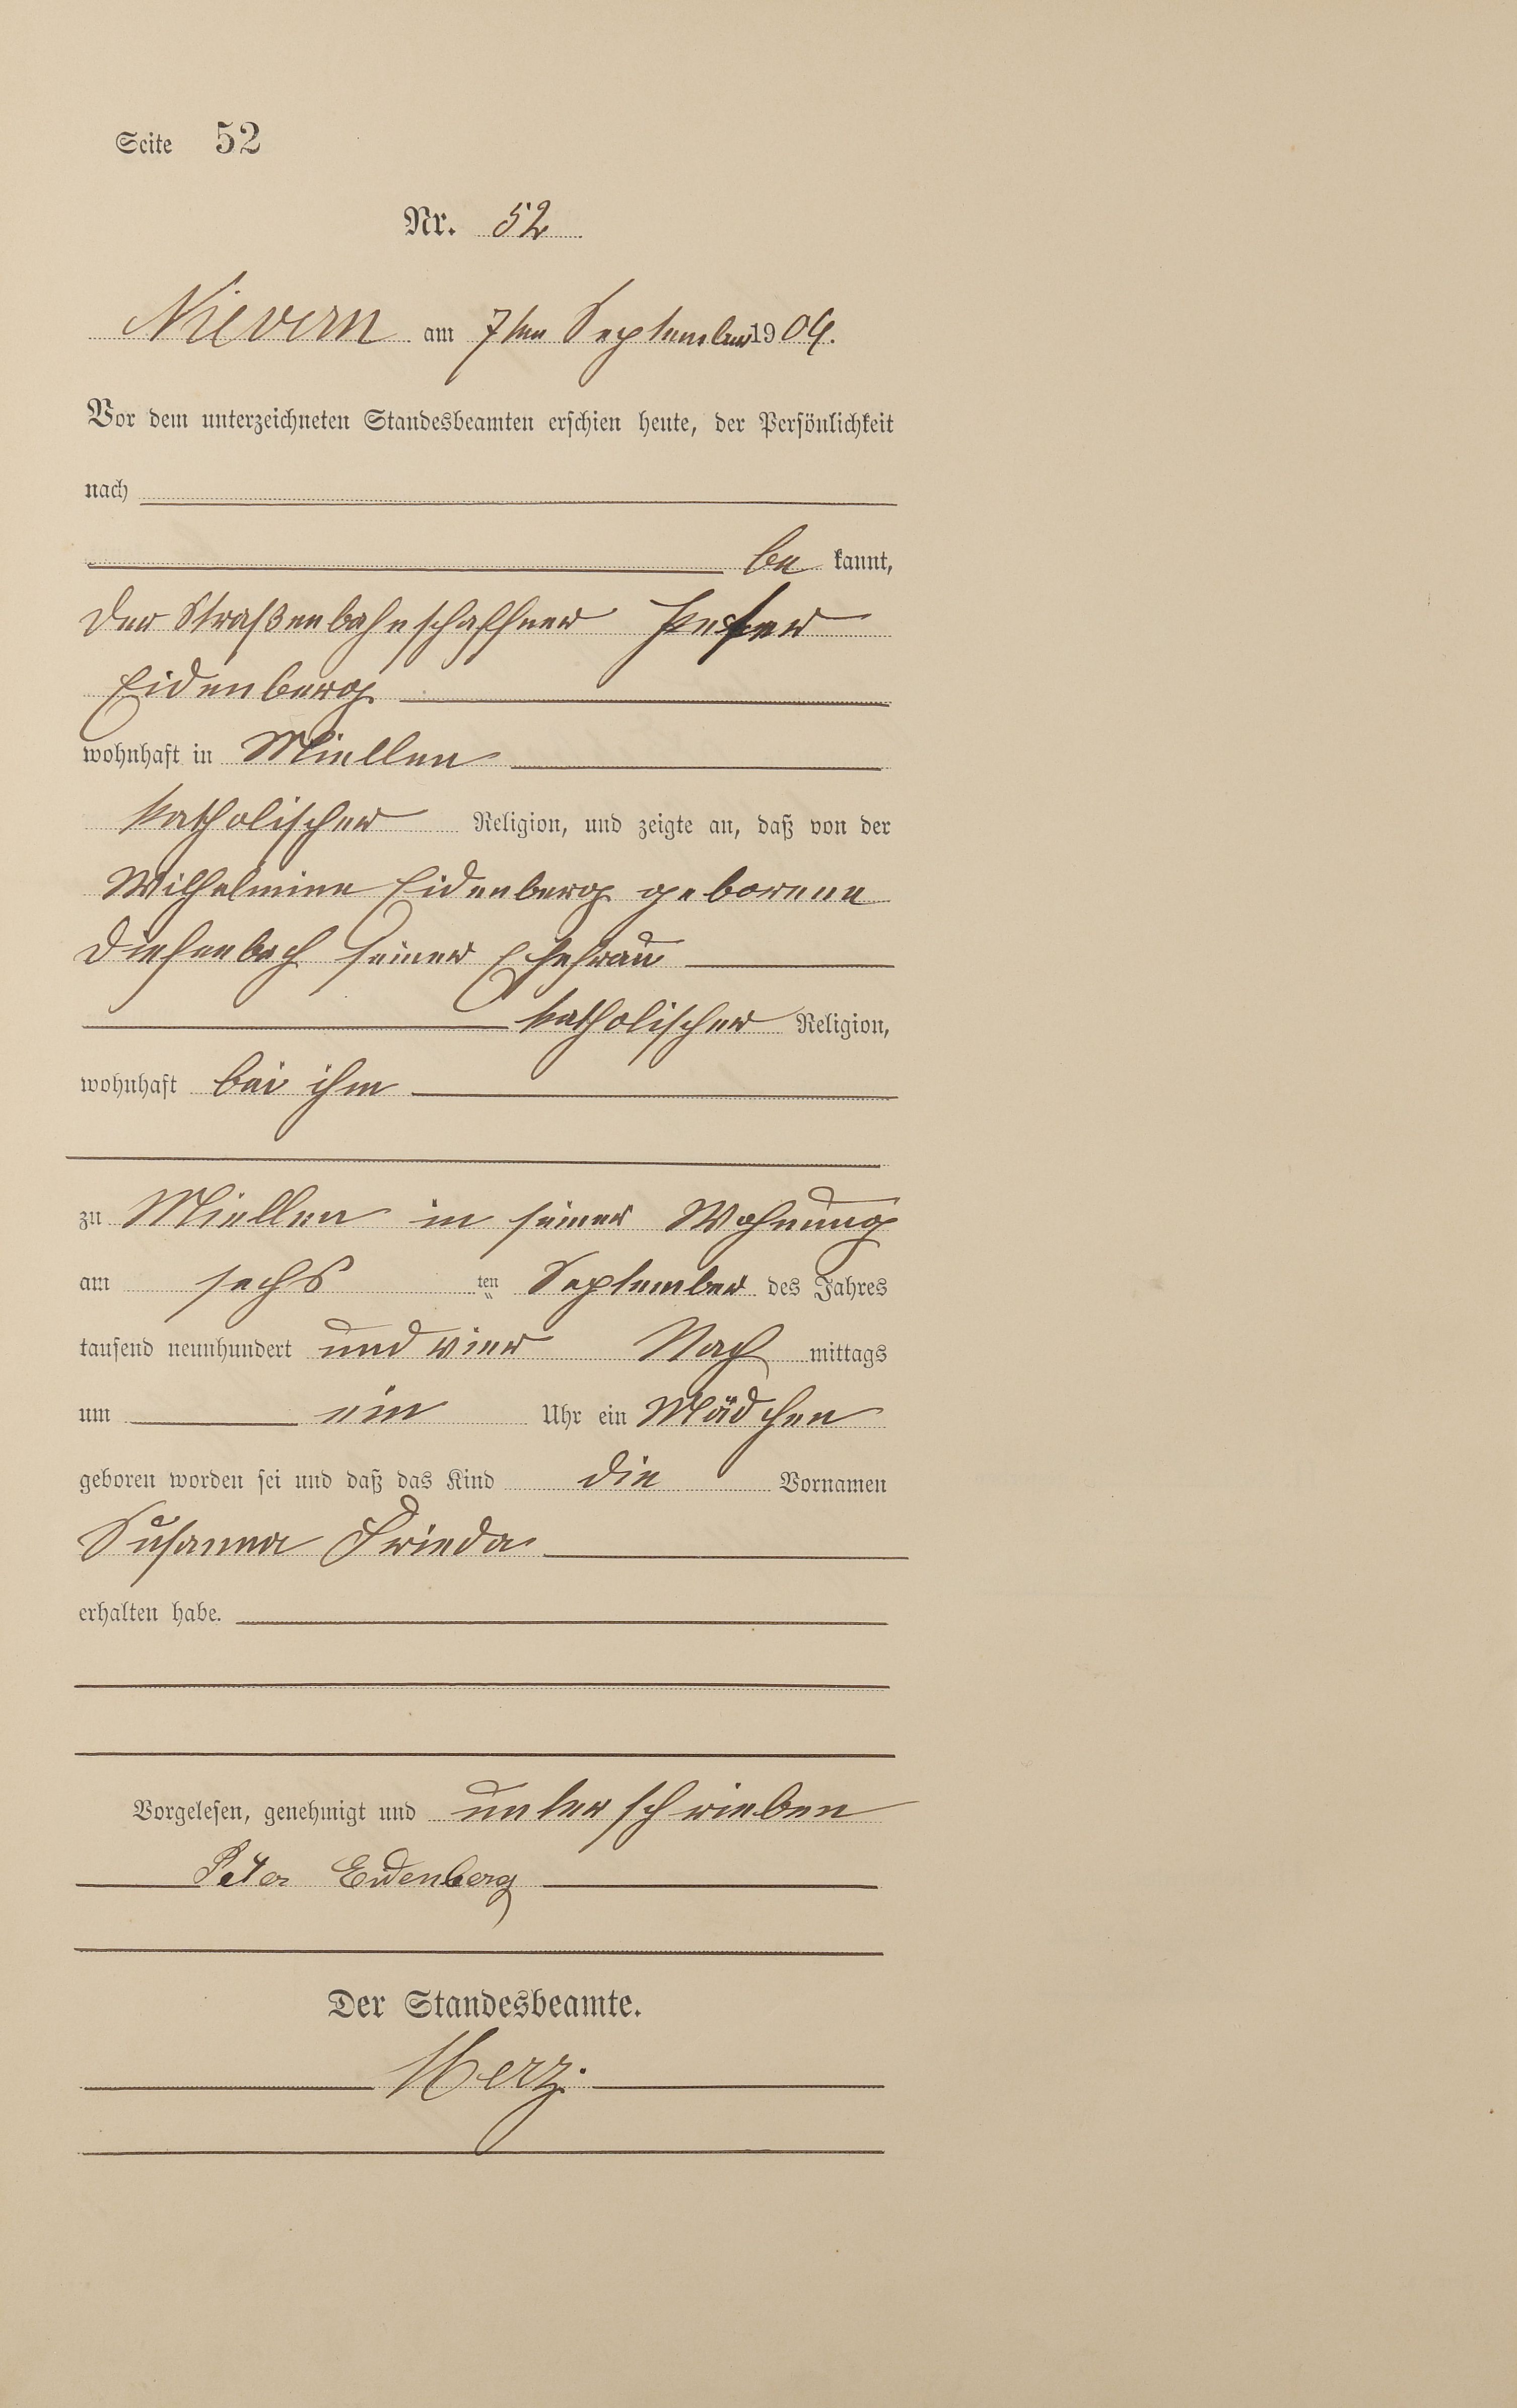 Seite 52
Nr. 52
Nievern am 7ten September 1904.
Vor dem unterzeichneten Standesbeamten erschien heute, der Persönlichkeit
nach
be kannt,
der Straßenbahnschaffner Peter
Eidenberg
wohnhaft in Miellen
katholischer Religion, und zeigte an, daß von der
Wilhelmine Eidenberg geborene
Diefenbach seiner Ehefrau
katholischer Religion,
wohnhaft bei ihm
zu Miellen in seiner Wohnung
am sechs ten September des Jahres
tausend neunhundert und vier Nach mittags
um ein Uhr ein Mädchen
geboren worden sei und daß das Kind die Vornamen
Susanna Frieda
erhalten habe.
Vorgelesen, genehmigt und unterschrieben
Peter Eidenberg
Der Standesbeamte.
Merz.